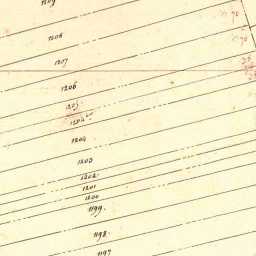 1209
1208
1207
1206
1205
1204
1203
1202
1201
1200
1199
1198
1197